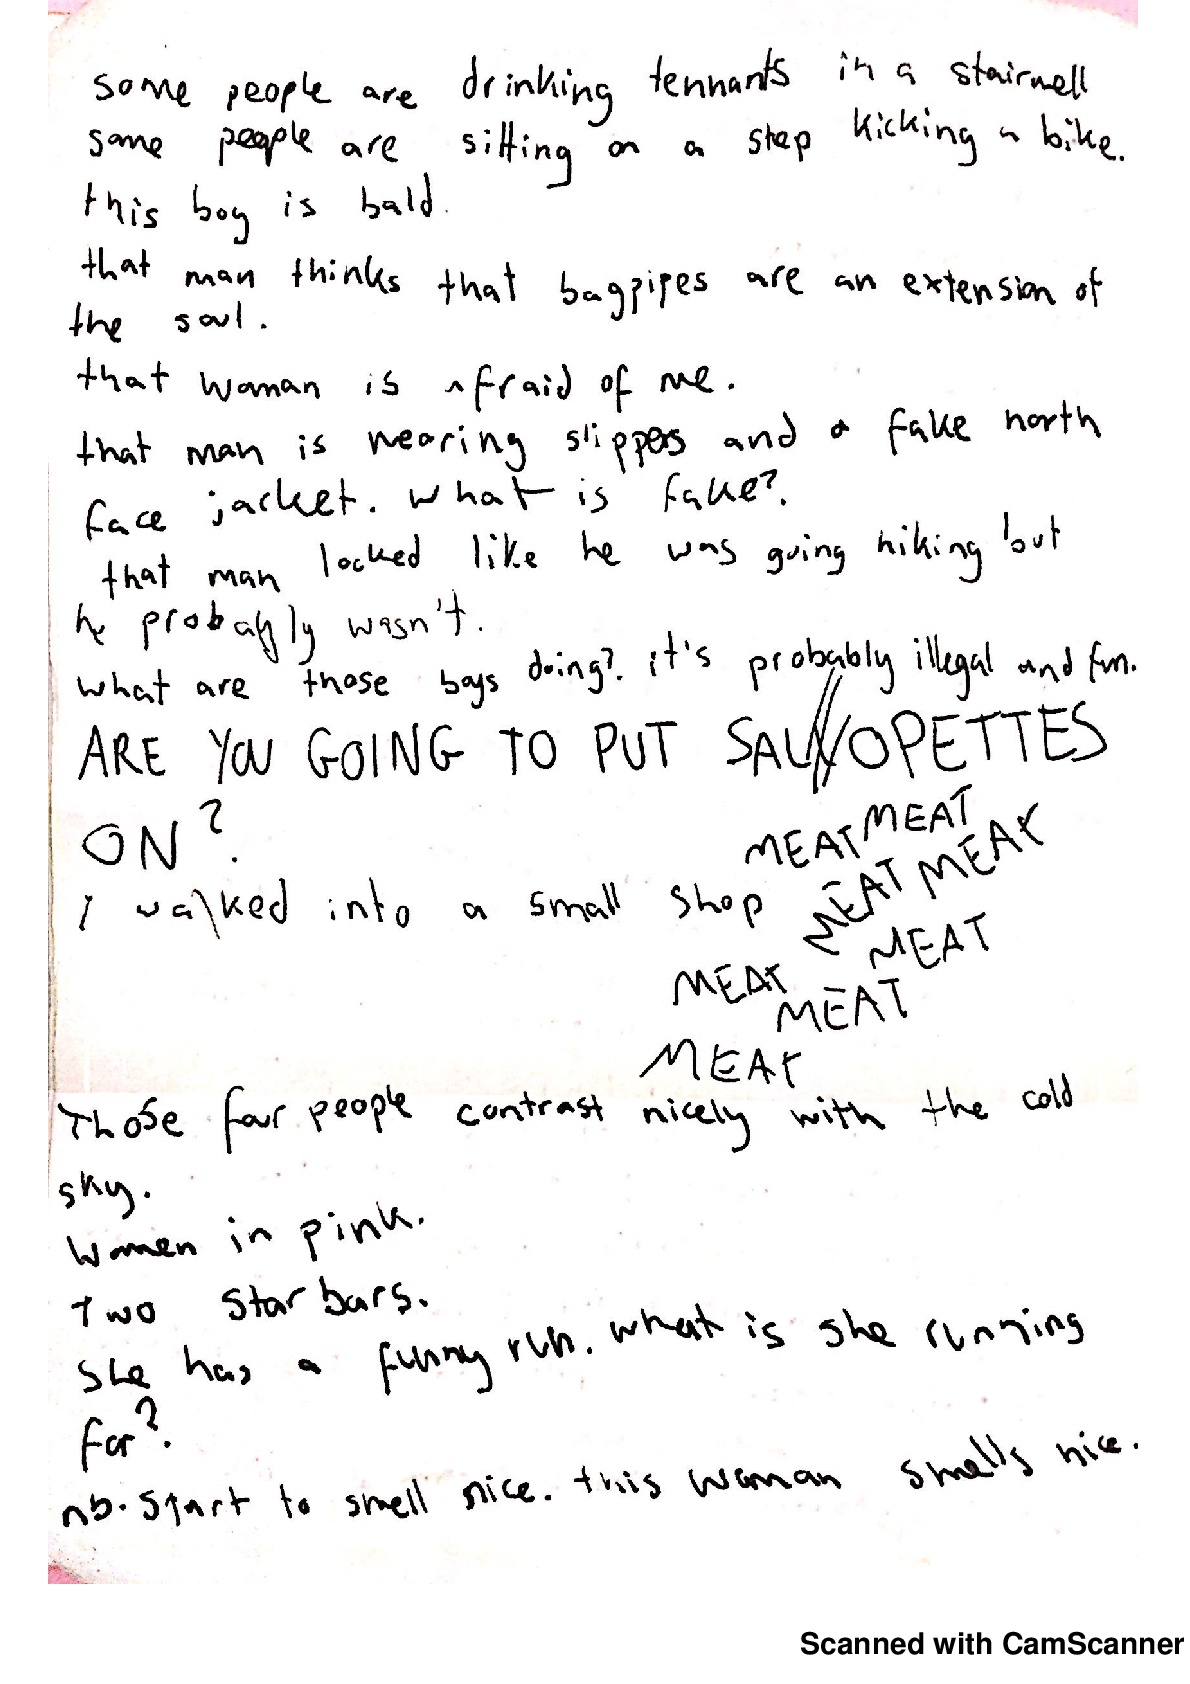 some people are drinking tennants in a stairwell
some people are sitting on a step kicking a bike.
this boy is bald.
that man thinks that bagpipes are an extension of
the soul.
that woman is afraid of me.
that man is wearing slippers and a fake north
face jacket. what is fake?.
that man looked like he was going hiking but
he probably wasn't.
what are those boys doing?. it's probably illegal and fun.
ARE YOU GOING TO PUT SALLOPETTES
ON?
MEAT MEAT
MEAT MEAT
I walked into a small shop
MEAT
MEAT
MEAT
MEAT
Those four people contrast nicely with the cold
sky.
Women in pink.
Two star bars.
She has a funny run. what is she running
for?
nb. start to smell nice. this woman smells nice.
Scanned with CamScanner